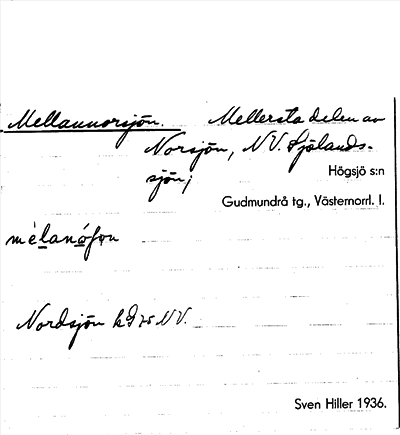 Mellannorsjön. Mellersta delen av
Norsjön, NV. Själands-
sjön;
Högsjö s:n
Gudmundrå tg., Västernorrl. l.
mèlanóſọn
Nordsjön kg 75 NV.
Sven Hiller 1936.